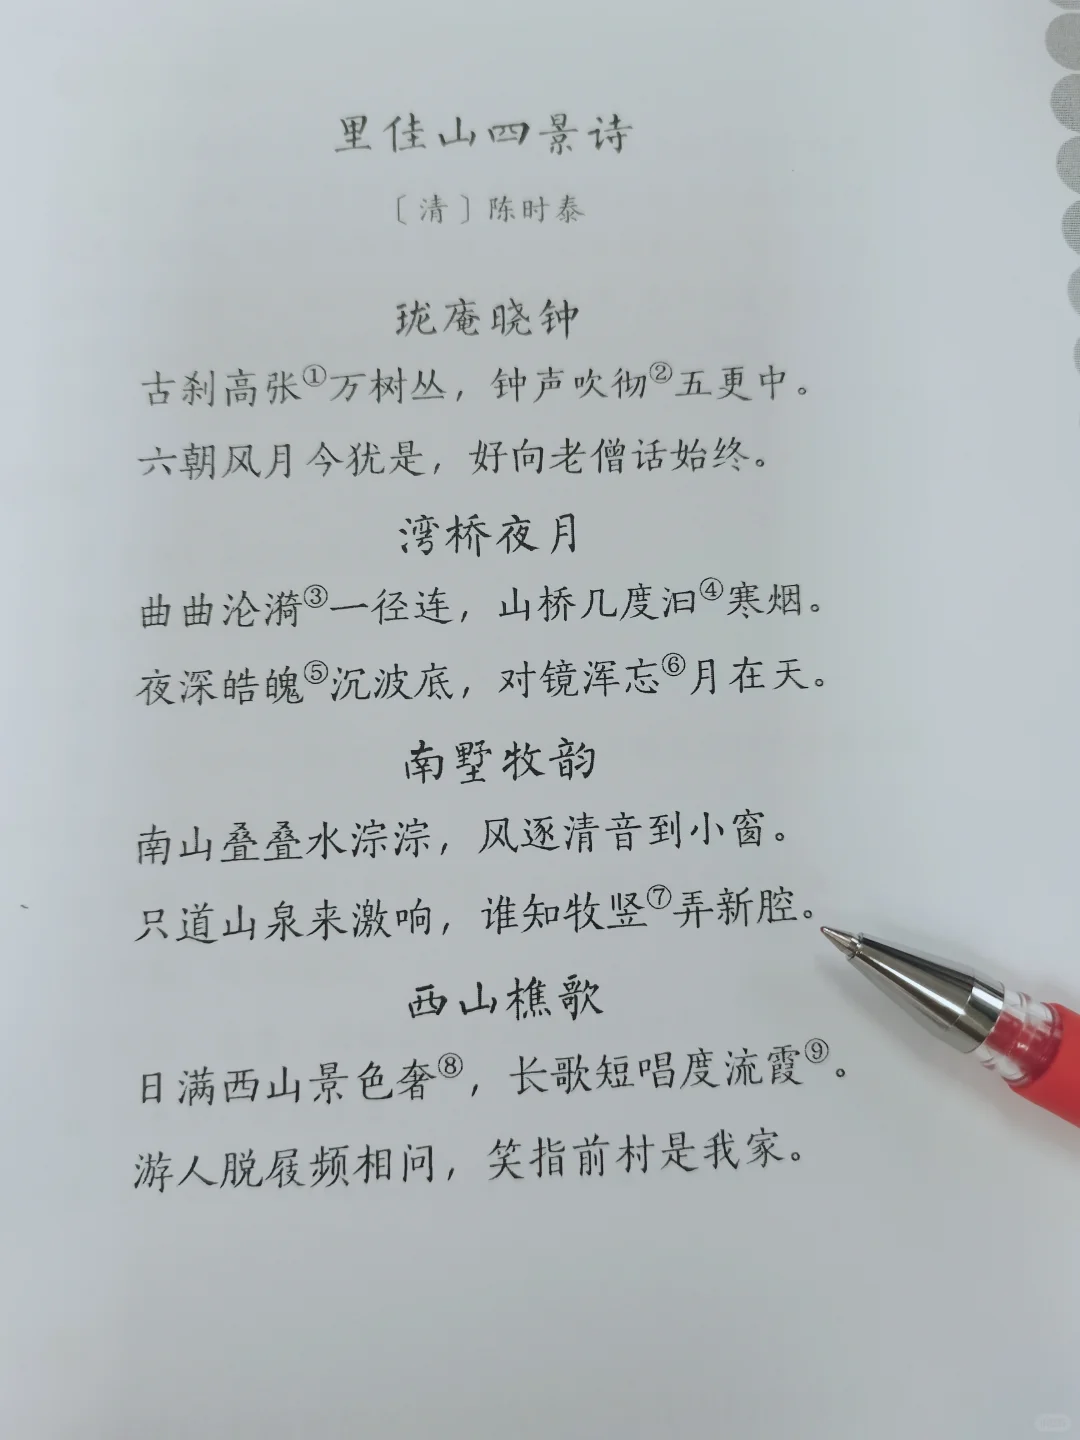 里佳山四景诗
〔清〕陈时泰
珑庵晓钟
古刹高张①万树丛，钟声吹彻②五更中。
六朝风月今犹是，好向老僧话始终。
湾桥夜月
曲曲沦漪③一径连，山桥几度汩④寒烟。
夜深皓魄⑤沉波底，对镜浑忘⑥月在天。
南墅牧韵
南山叠叠水淙淙，风逐清音到小窗。
只道山泉来激响，谁知牧竖⑦弄新腔。
西山樵歌
日满西山景色奢⑧，长歌短唱度流霞⑨。
游人脱屐频相问，笑指前村是我家。